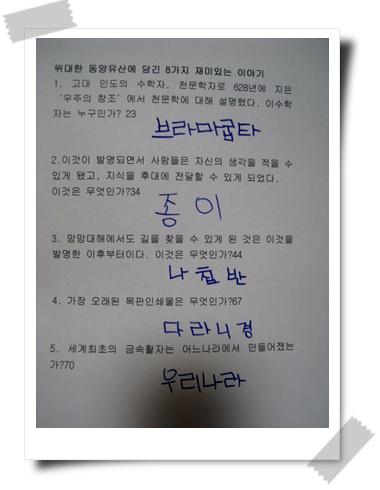 위대한 동양유산에 담긴 8가지 재미있는 이야기
1. 고대 인도의 수학자, 천문학자로 628년에 지은
‘우주의 창조’에서 천문학에 대해 설명했다. 이수학
자는 누구인가? 23
브라마굽타
2.이것이 발명되면서 사람들은 자신의 생각을 적을 수
있게 됐고, 지식을 후대에 전달할 수 있게 되었다.
이것은 무엇인가?34
종이
3. 망망대해에서도 길을 찾을 수 있게 된 것은 이것을
발명한 이후부터이다. 이것은 무엇인가?44
나침반
4. 가장 오래된 목판인쇄물은 무엇인가?67
다라니경
5. 세계최초의 금속활자는 어느나라에서 만들어졌는
가?70
우리나라